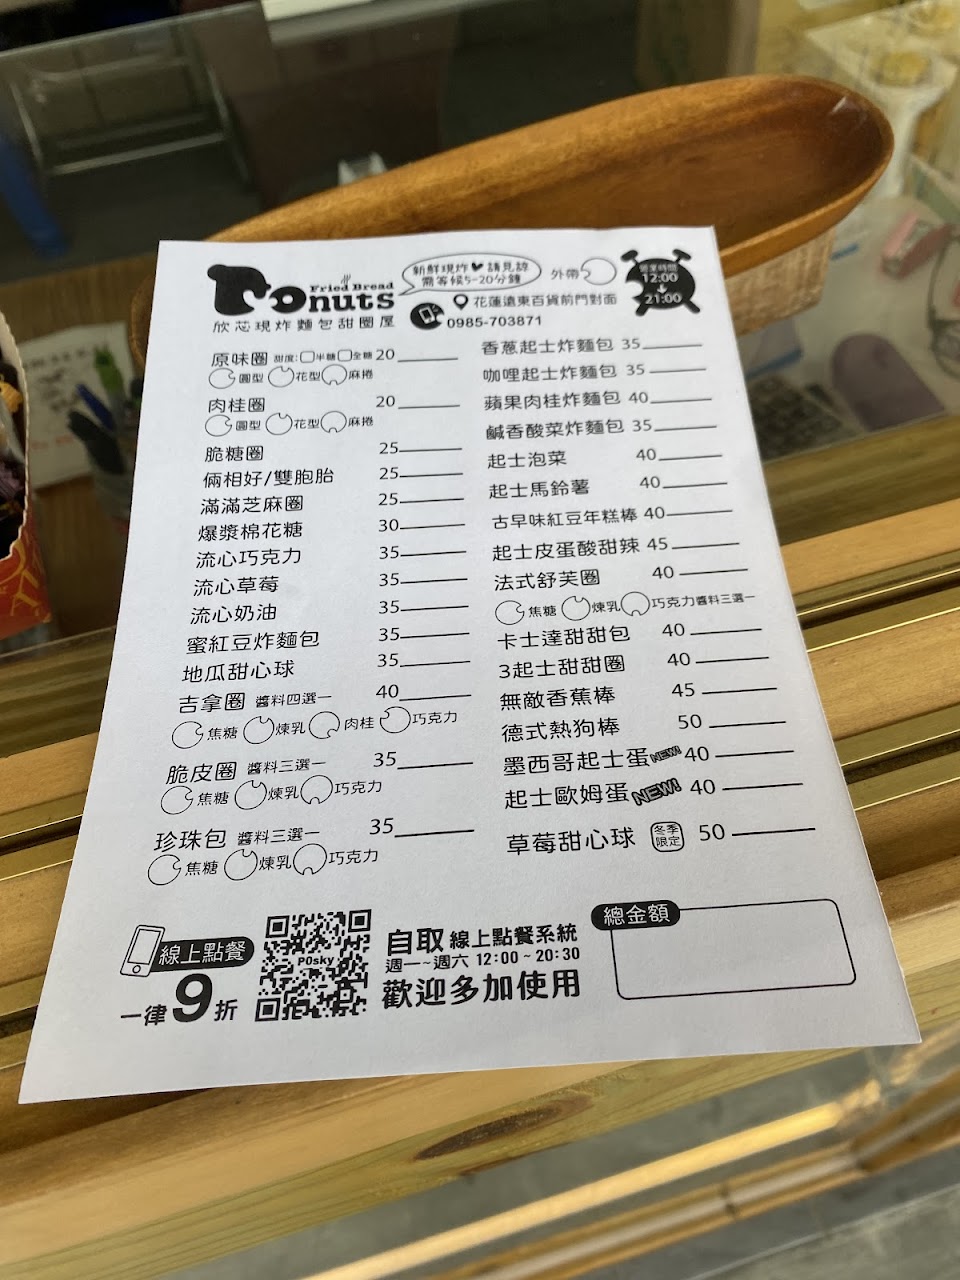 Fried Bread
Donuts
欣芯現炸麵包甜圈屋
新鮮現炸♥請見諒
需等候5-20分鐘
外帶
營業時間
12:00
21:00
花蓮遠東百貨前門對面
0985-703871
原味圈 甜度:□半糖□全糖 20
圓型 花型 麻捲
肉桂圈 20
圓型 花型 麻捲
脆糖圈 25
倆相好/雙胞胎 25
滿滿芝麻圈 25
爆漿棉花糖 30
流心巧克力 35
流心草莓 35
流心奶油 35
蜜紅豆炸麵包 35
地瓜甜心球 35
吉拿圈 醬料四選一 40
焦糖 煉乳 肉桂 巧克力
脆皮圈 醬料三選一 35
焦糖 煉乳 巧克力
珍珠包 醬料三選一 35
焦糖 煉乳 巧克力
香蔥起士炸麵包 35
咖哩起士炸麵包 35
蘋果肉桂炸麵包 40
鹹香酸菜炸麵包 35
起士泡菜 40
起士馬鈴薯 40
古早味紅豆年糕棒 40
起士皮蛋酸甜辣 45
法式舒芙圈 40
焦糖 煉乳 巧克力醬料三選一
卡士達甜甜包 40
3起士甜甜圈 40
無敵香蕉棒 45
德式熱狗棒 50
墨西哥起士蛋 NEW! 40
起士歐姆蛋 NEW! 40
草莓甜心球 冬季限定 50
線上點餐
一律9折
P0sky
自取 線上點餐系統
週一~週六 12:00~20:30
歡迎多加使用
總金額